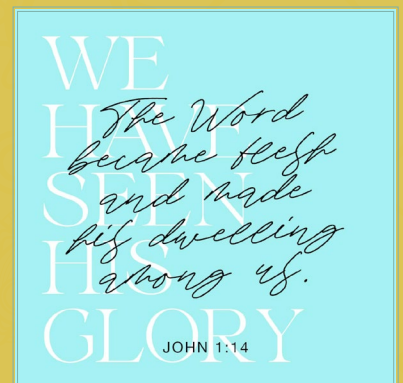 WE
HAVE
SEEN
HIS
GLORY
The Word
became flesh
and made
his dwelling
among us.
JOHN 1:14